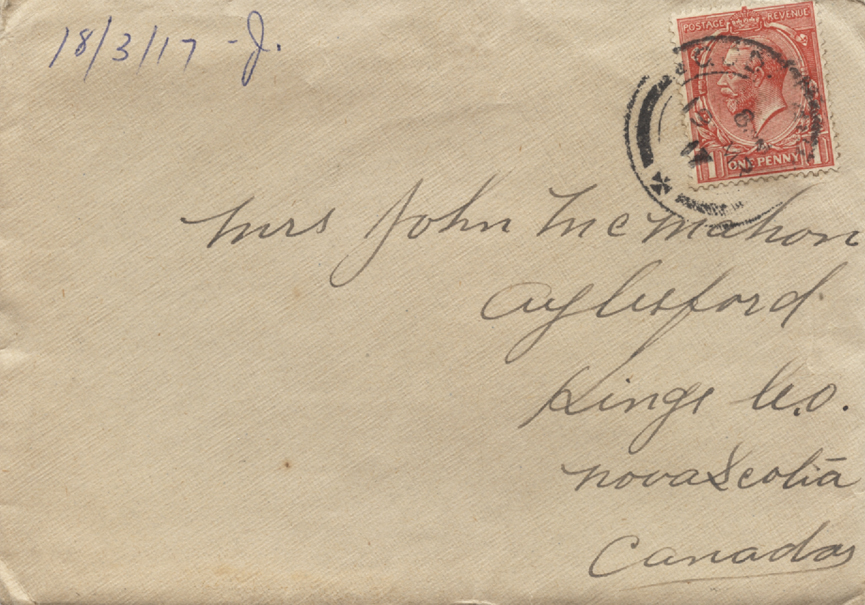 18/3/17 - J.
POSTAGE REVENUE
1 ONE PENNY 1
Mrs John McMahon
Aylesford
Kings Co.
Nova Scotia
Canada